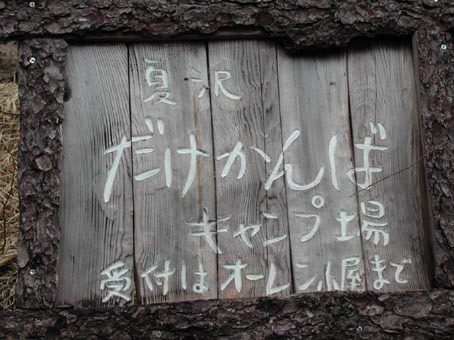 夏沢
だけかんば
キャンプ場
受付はオーレン小屋まで